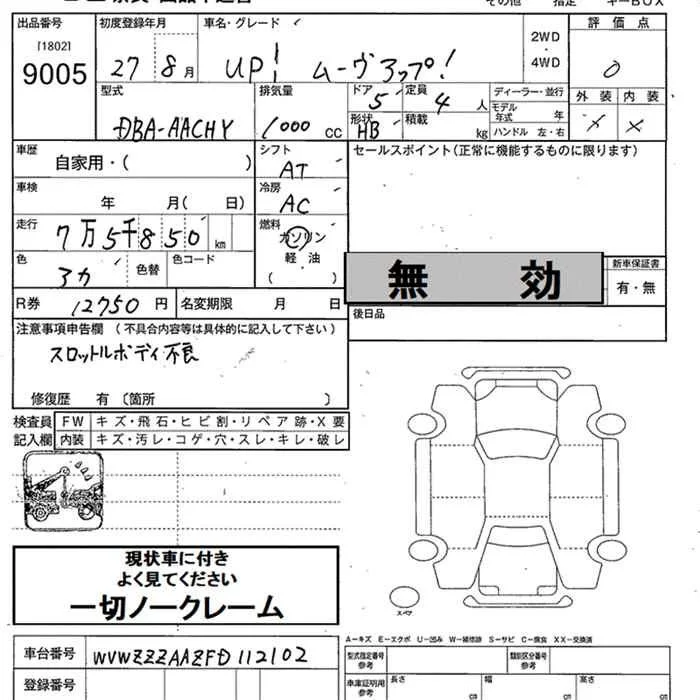 その他 指定 キーBOX
出品番号 初度登録年月 車名・グレード 2WD ・ 4WD 評価点
[1802]
9005 27年 8月 UP! ムーヴアップ! 0
型式 排気量 ドア 5 定員 4人 ディーラー・並行 外装 内装
DBA-AACHY 1000 cc 形状 HB 積載 kg モデル年式 年 × ×
ハンドル 左・右
車歴 自家用・( ) シフト AT セールスポイント(正常に機能するものに限ります)
車検 年 月( 日) 冷房 AC
走行 7万5千850 km 燃料 ガソリン
軽・油
( )
色 アカ 色替 色コード
無効
新車保証書
有・無
R券 12750円 名変期限 月 日
後日品
注意事項申告欄 (不具合内容等は具体的に記入して下さい)
スロットルボディ不良
修復歴 有 〔箇所 〕
検査員 FW キズ・飛石・ヒビ割・リペア跡・X要
記入欄 内装 キズ・汚レ・コゲ・穴・スレ・キレ・破レ
現状車に付き
よく見てください
一切ノークレーム
スペヤ
A−キズ E−エクボ U−凹み W−補修跡 S−サビ C−腐食 XX−交換済
車台番号 WVWZZZAAZFD112102
型式指定番号 参考 類別区分番号 参考
登録番号
車庫証明用 参考 長さ cm 幅 cm 高さ cm